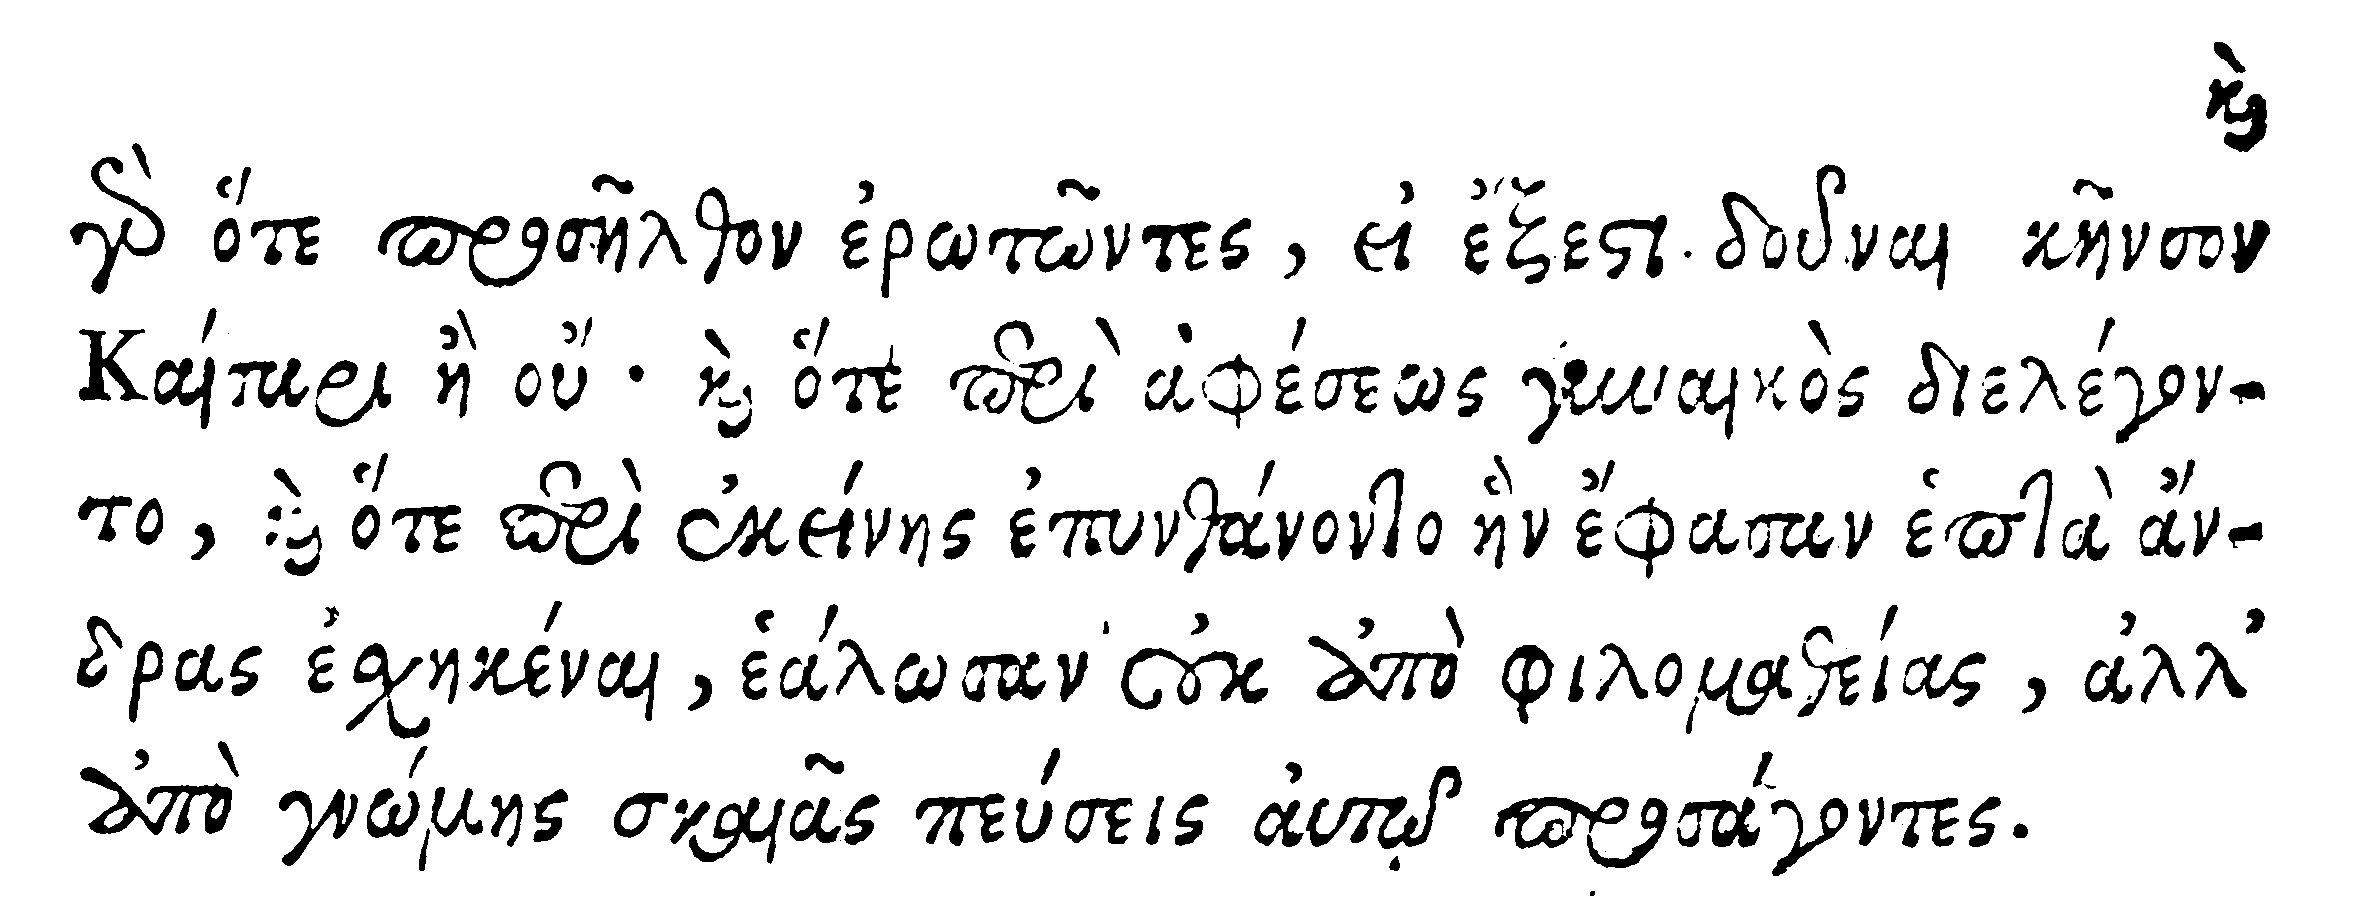 καὶ
γὰρ ὅτε προσῆλθον ἐρωτῶντες, εἰ ἔξεστι δοῦναι κῆνσον
Καίσαρι ἢ οὔ· καὶ ὅτε περὶ ἀφέσεως γυναικὸς διελέγον-
το, καὶ ὅτε περὶ ἐκείνης ἐπυνθάνοντο ἣν ἔφασαν ἑπτὰ ἄν-
δρας ἐσχηκέναι, ἑάλωσαν οὐκ ἀπὸ φιλομαθείας, ἀλλ’
ἀπὸ γνώμης σκαιᾶς πεύσεις αὐτῷ προσάγοντες.